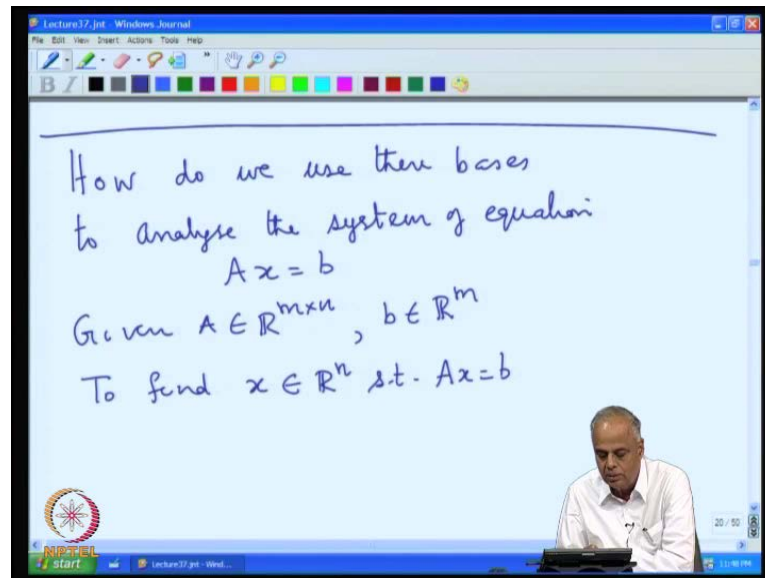 Lecture37.jnt - Windows Journal
File Edit View Insert Actions Tools Help
B I
How do we use these bases
to analyse the system of equation
Ax = b
Given A ∈ ℝ^{m×n}, b ∈ ℝ^m
To find x ∈ ℝ^n s.t. Ax=b
20 / 50
NPTEL
start
Lecture37.jnt - Wind...
11:48 PM